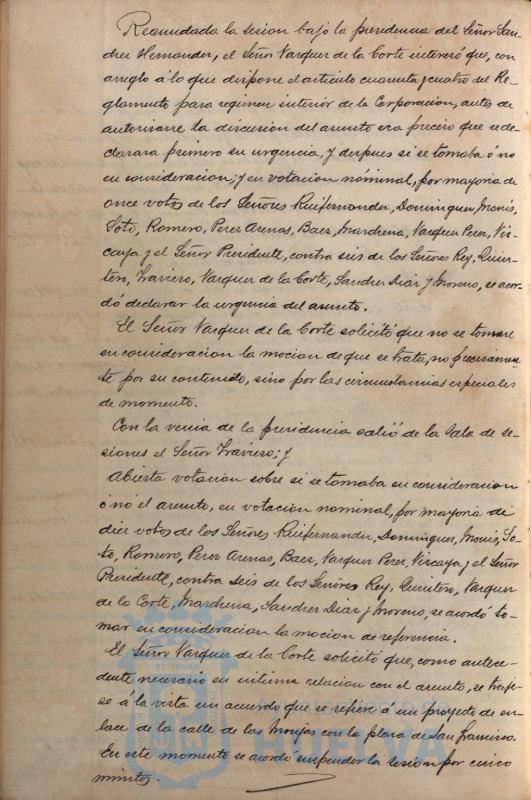 Reanudada la sesion bajo la presidencia del Señor San-
chez Hernandez, el Señor Vazquez de la Corte interesó que, con
arreglo á lo que dispone el artículo cuarenta y cuatro del Re-
glamento para regimen interior de la Corporacion, antes de
autorizarse la discusion del asunto era preciso que se de-
clarara primero su urgencia, y despues si se tomaba ó no
en consideracion; y en votacion nominal, por mayoria de
once votos de los Señores Ruifernandez, Dominguez, Monis,
Soto, Romero, Perez Arenas, Baez, Marchena, Vazquez Perez, Viz-
caya y el Señor Presidente, contra seis de los Señores Rey, Quin-
tero, Travieso, Vazquez de la Corte, Sanchez Diaz y Moreno, se acor-
dó declarar la urgencia del asunto.
El Señor Vazquez de la Corte solicitó que no se tomase
en consideracion la mocion de que se trata, no precisamen-
te por su contenido, sino por las circunstancias especiales
de momento.
Con la venia de la presidencia salió de la Sala de se-
siones el Señor Travieso; y
Abierta votacion sobre si se tomaba en consideracion
ó nó el asunto, en votacion nominal, por mayoria de
diez votos de los Señores Ruifernandez, Dominguez, Monis, So-
to, Romero, Perez Arenas, Baez, Vazquez Perez, Vizcaya y el Señor
Presidente, contra seis de los Señores Rey, Quintero, Vazquez
de la Corte, Marchena, Sanchez Diaz y Moreno, se acordó to-
mar en consideracion la mocion de referencia.
El Señor Vazquez de la Corte solicitó que, como antece-
dente necesario en intima relacion con el asunto, se traje-
se á la vista un acuerdo que se refiere á un proyecto de en-
lace de la calle de las Monjas con la plaza de San Francisco.
En este momento se acordó suspender la sesion por cinco
minutos.
ET TERRA
HUELVA